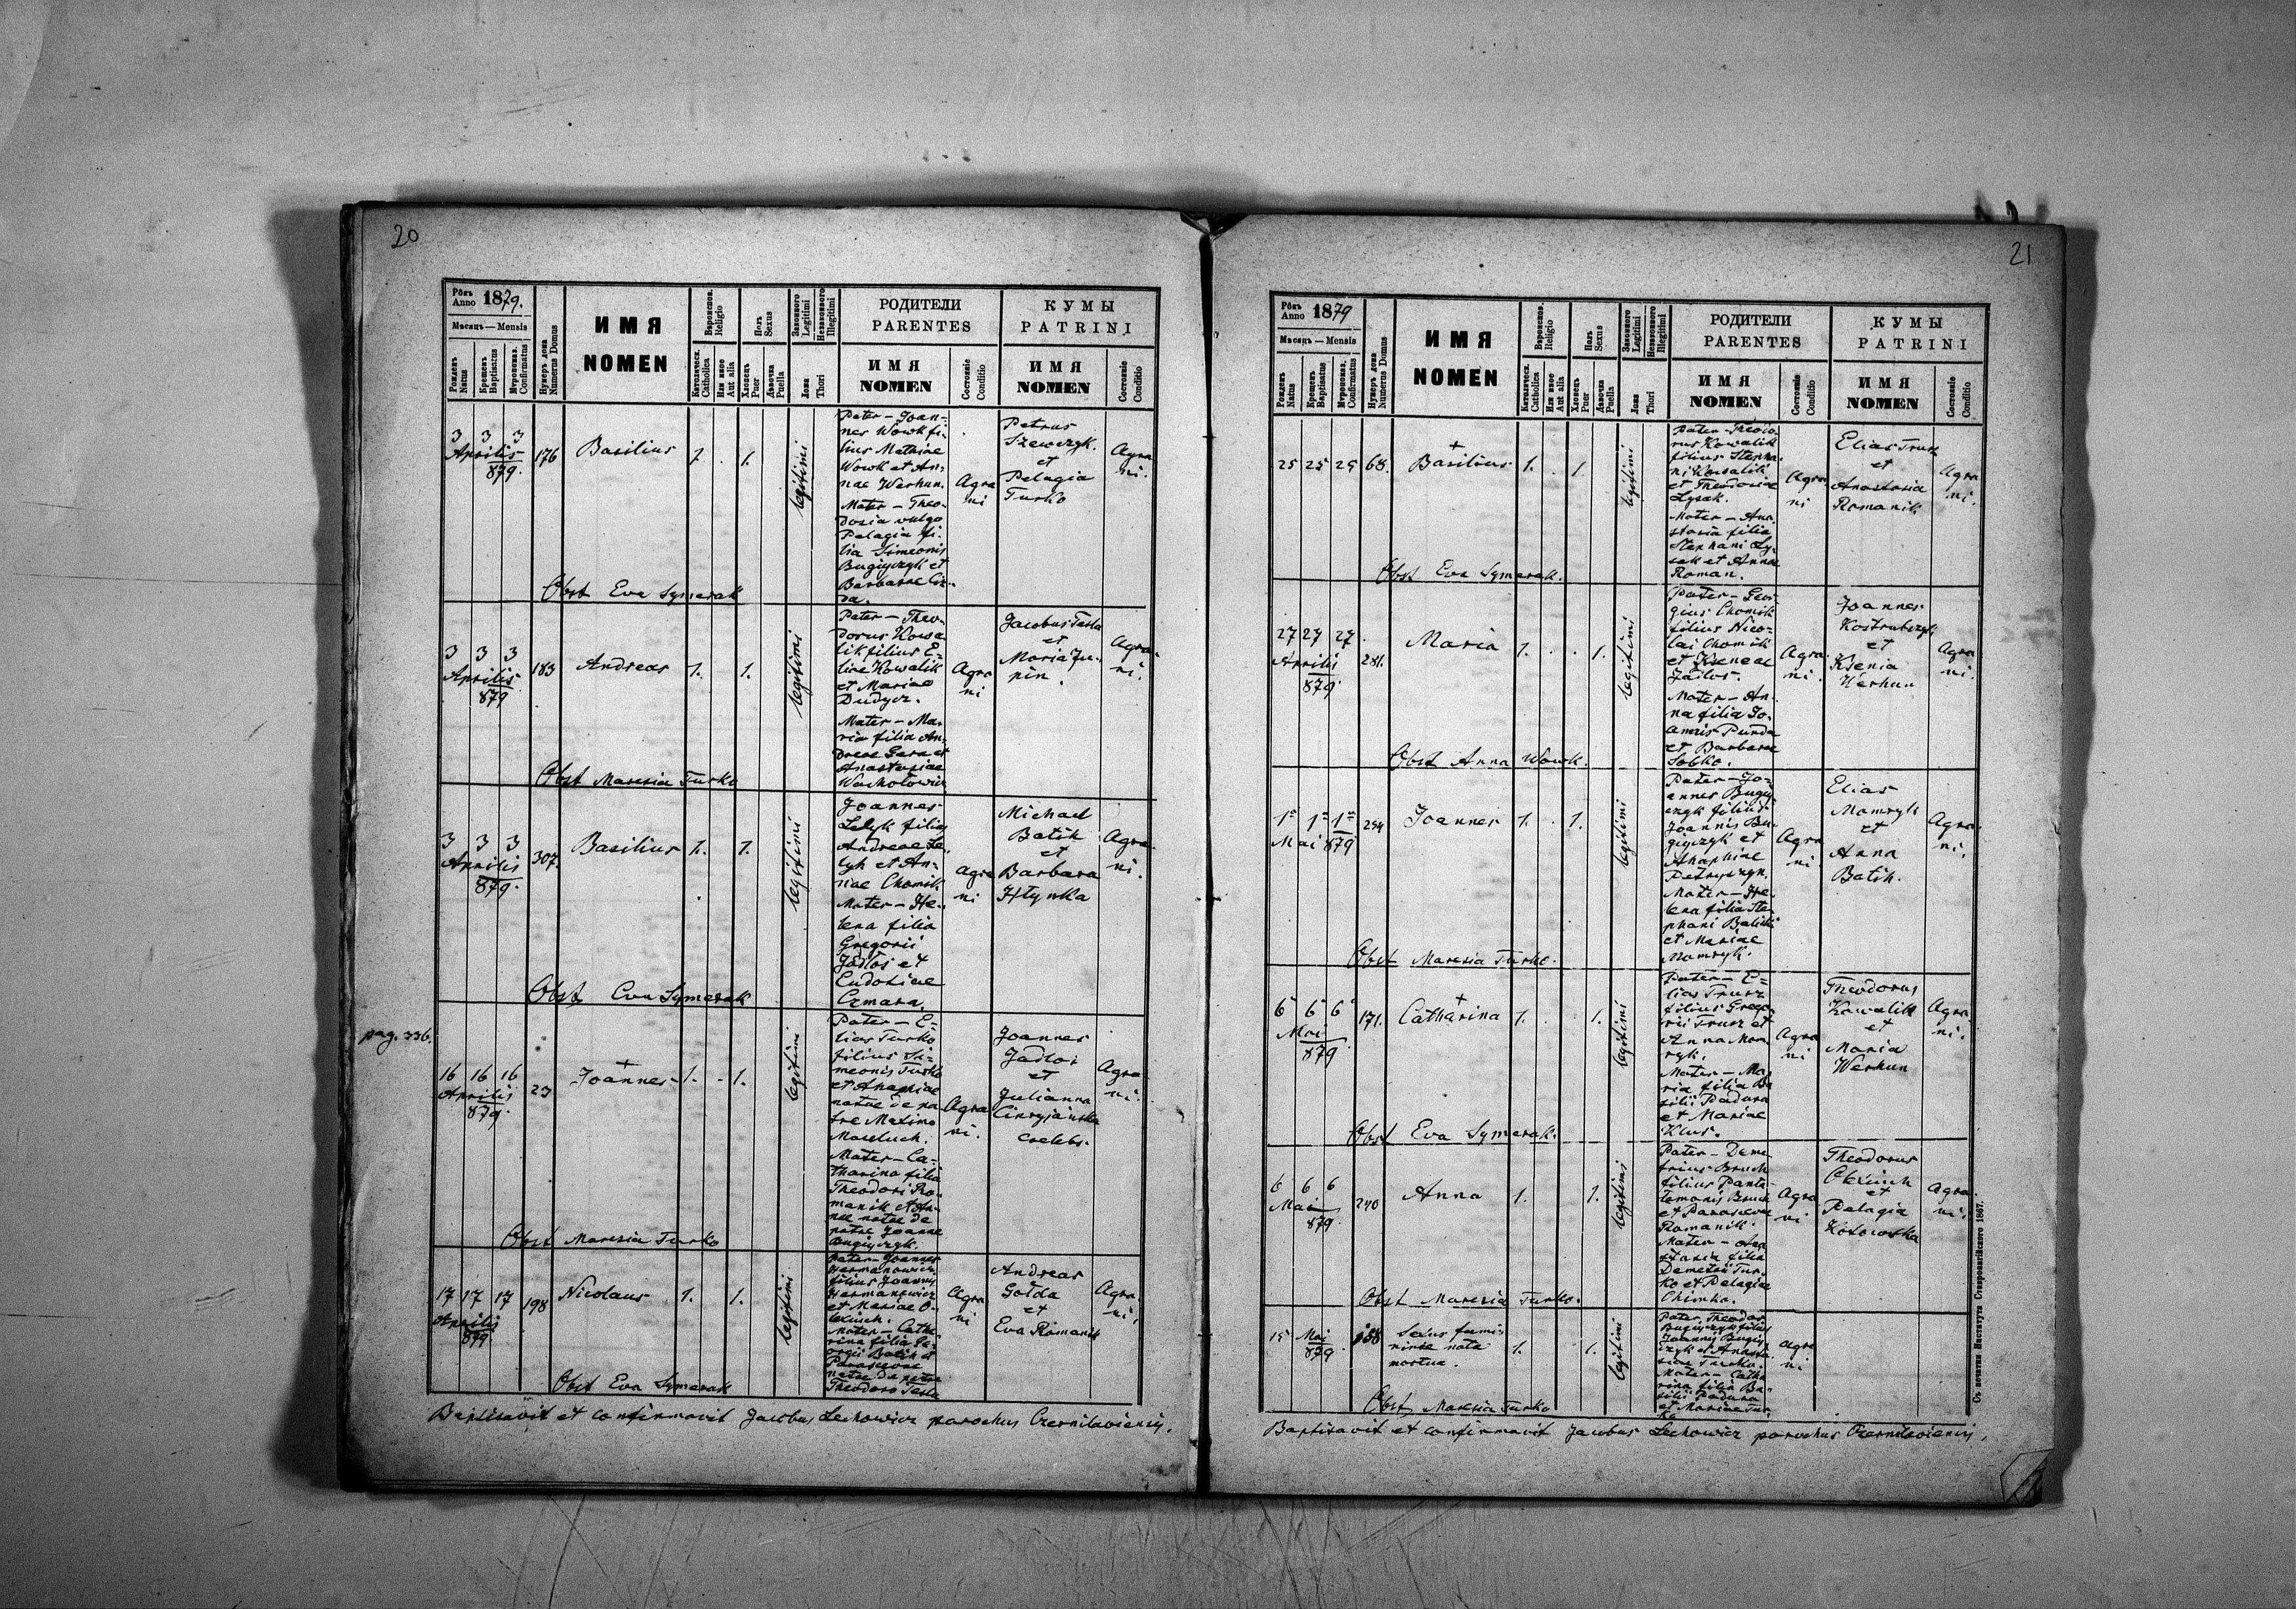 20
Рôкъ
Anno 1879.
Мѣсяцъ — Mensis
Рожденъ
Natus
Крещенъ
Baptisatus
Мѵропомаз.
Confirmatus
Нумеръ дома
Numerus Domus
ИМЯ
NOMEN
Вѣроиспов.
Religio
Католическ.
Catholica
Или иное
Aut alia
Полъ
Sexus
Хлопецъ
Puer
Дѣвочка
Puella
Законного
Legitimi
Незаконного
Illegitimi
Ложа
Thori
РОДИТЕЛИ
PARENTES
ИМЯ
NOMEN
Состояніе
Conditio
КУМЫ
PATRINI
ИМЯ
NOMEN
Состояніе
Conditio
3 3 3
Aprilis
879.
176
Basilius
1.
1.
legitimi
Pater – Joan-
nes Wowk fi-
lius Mathiae
Wowk et An-
nae Werhun.
Mater – Theo-
dosia vulgo
Pelagia fi-
lia Simeonis
Bugiyczyk et
Barbarae
da.
Agra
ni
Petrus
Szewczyk
et
Pelagia
Turko
Agra
ni.
Obst Eva Symerak
3 3 3
Aprilis
879
183
Andreas
1.
1.
legitimi
Pater – Theo-
dorus Kowa
lik filius E-
liae Kowalik
et Mariae
Dudycz.
Mater – Ma-
ria filia An-
dreae Gera et
Anastasiae
Wachotowicz
Agra
ni
Jacobus Tesla
et
Maria Ju-
rin.
Agra
ni.
Obst Maresia Turko
3 3 3
Aprilis
879.
307.
Basilius
1.
1.
legitimi
Joannes
Lelyk filius
Andreae Le-
lyk et An-
nae Chomik.
Mater – He-
lena filia
Gregorii
Jadłoś et
Eudoxiae
Czmara.
Agra
ni
Michael
Batih
et
Barbara
Hłynka
Agra
ni.
Obst Eva Symerak
pag. 336.
16 16 16
Aprilis
879.
23
+
Joannes
1.
1.
legitimi
Pater – E-
lias Turko
filius Si-
meonis Turko
et Anaphiae
natae de pa
tre Maximo
Maseluch.
Mater – Ca-
tharina filia
Theodori Ro-
manik et An-
nae natae de
patre Joanne
Bugiyczyk.
Agra
ni.
Joannes
Jadłoś
et
Julianna
caelebs.
Agra
ni.
Obst Maresia Turko
17 17 17
Aprilis
879
198
Nicolaus
1.
1.
legitimi
Pater – Joannes
Hermanowicz
filius Joannis
Hermanowicz
et Mariae O-
lexiuch.
Mater – Catha
rina filia Ge-
orgii Batih et
Parascevae
natae de patre
Theodoro Tesla
Agra
ni
Andreas
Gołda
et
Eva Romanik
Agra
ni.
Obst Eva Symerak
Baptisavit et confirmavit Jacobus Lechowicz parochus Czernilaviensis.
21
Рôкъ
Anno 1879
Мѣсяцъ — Mensis
Рожденъ
Natus
Крещенъ
Baptisatus
Мѵропомаз.
Confirmatus
Нумеръ дома
Numerus Domus
ИМЯ
NOMEN
Вѣроиспов.
Religio
Католическ.
Catholica
Или иное
Aut alia
Полъ
Sexus
Хлопецъ
Puer
Дѣвочка
Puella
Законного
Legitimi
Незаконного
Illegitimi
Ложа
Thori
РОДИТЕЛИ
PARENTES
ИМЯ
NOMEN
Состояніе
Conditio
КУМЫ
PATRINI
ИМЯ
NOMEN
Состояніе
Conditio
25 25 25
68.
+
Basilius
1.
1.
legitimi
Pater – Theodo-
rus Kowalik
filius Stepha-
ni Kowalik
et Theodosiae
Lysak.
Mater – Ana-
stasia filia
Stephani Ly-
sak et Annae
Roman.
Agra-
ni
Elias Trusz
et
Anastasia
Romanik
Agra
ni.
Obst Eva Symerak.
27 27 27
Aprilis
879
281.
Maria
1.
1.
legitimi
Pater – Geor-
gius Chomik
filius Nico-
lai Chomik
et Kseneae
Jadłoś.
Mater – An-
na filia Jo-
annis Punda
et Barbarae
Sobko.
Agra
ni.
Joannes
Kostrubczyk
et
Ksenia
Werhun
Agra
ni.
Obst Anna Wowk.
1a 1a 1a
Mai 879
254
Joannes
1.
1.
legitimi
Pater – Jo-
annes Bugiy
czyk filius
Joannis Bu-
giyczyk et
Anaphiae
Petryszyn.
Mater – He-
lena filia Ste-
phani Batih
et Mariae
Mamryk.
Agra
ni
Elias
Mamryk
et
Anna
Batih.
Agra-
ni.
Obst Maresia Turko.
6 6 6
Mai
879
171.
+
Catharina
1.
1.
legitimi
Pater – E-
lias Trusz
filius Grego-
rii Trusz et
Anna Mam-
ryk.
Mater – Ma-
ria filia Ba
silii Padura
et Mariae
Klus.
Agra
ni
Theodorus
Kowalik
et
Maria
Werhun
Agra-
ni.
Obst Eva Symerak.
6 6 6
Mai
879.
240
Anna
1.
1.
legitimi
Pater – Deme-
trius Bruch
filius Pante-
lemonis Bruch
et Parascevae
Romanik.
Mater – Ana
stasia filia
Demetrii Tur-
ko et Pelagiae
Chimka.
Agra
ni.
Theodorus
Olexiuch
et
Pelagia
Kotowska
Agra
ni.
Obst Maresia Turko.
15 Mai
879
158
Sexus femi-
ninae nata
mortua.
1.
1.
legitimi
Pater Theodor
Bugiyczyk filius
Joannis Bugiy-
czyk et Anasta-
siae Turko.
Mater – Catha
rina filia Ba-
silii Padura
et Mariae Tur-
ko
Agra
ni
Obst Maresia Turko
Baptisavit et confirmavit Jacobus Lechowicz parochus Czernilaviensis.
Съ печатни Института Ставропигійского 1867.